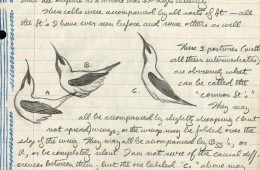 Their calls were accompanied by all sorts of ft — all
the ft's I have ever seen before and some others as well
These 3 postures (with
all their intermediates)
are obviously what
can be called the
"common St".
They may
A
B
C.
all be accompanied by slightly drooping (but
not spread wings, or the wings may be folded over the
edge of the wing. They may all be accompanied by
R, or be completely silent. I am not sure of the causal diff-
erences between them, but the one labelled "C" above may